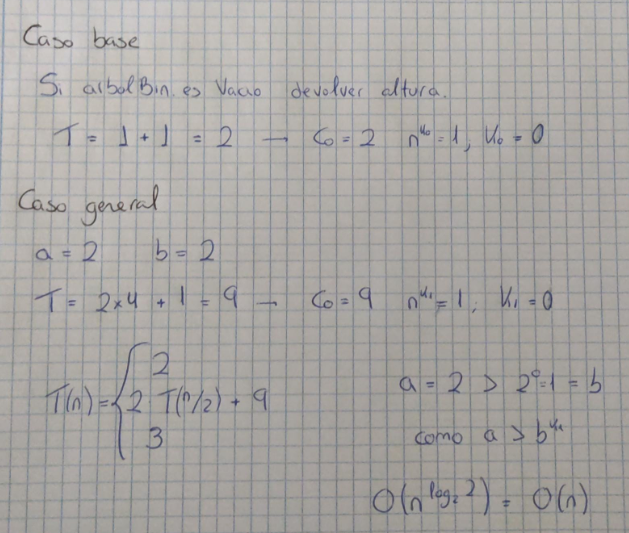 Caso base
Si arbolBin. es Vacio devolver altura.
T = 1 + 1 = 2 → C₀ = 2 n^k₀ = 1, K₀ = 0
Caso general
a = 2 b = 2
T = 2×4 + 1 = 9 → C₀ = 9 n^k₁ = 1; K₁ = 0
2
T(n) = { 2 T(n/2) + 9
3
a = 2 > 2⁰=1 = b
como a > b^k₁
O(n^log₂ 2) = O(n)